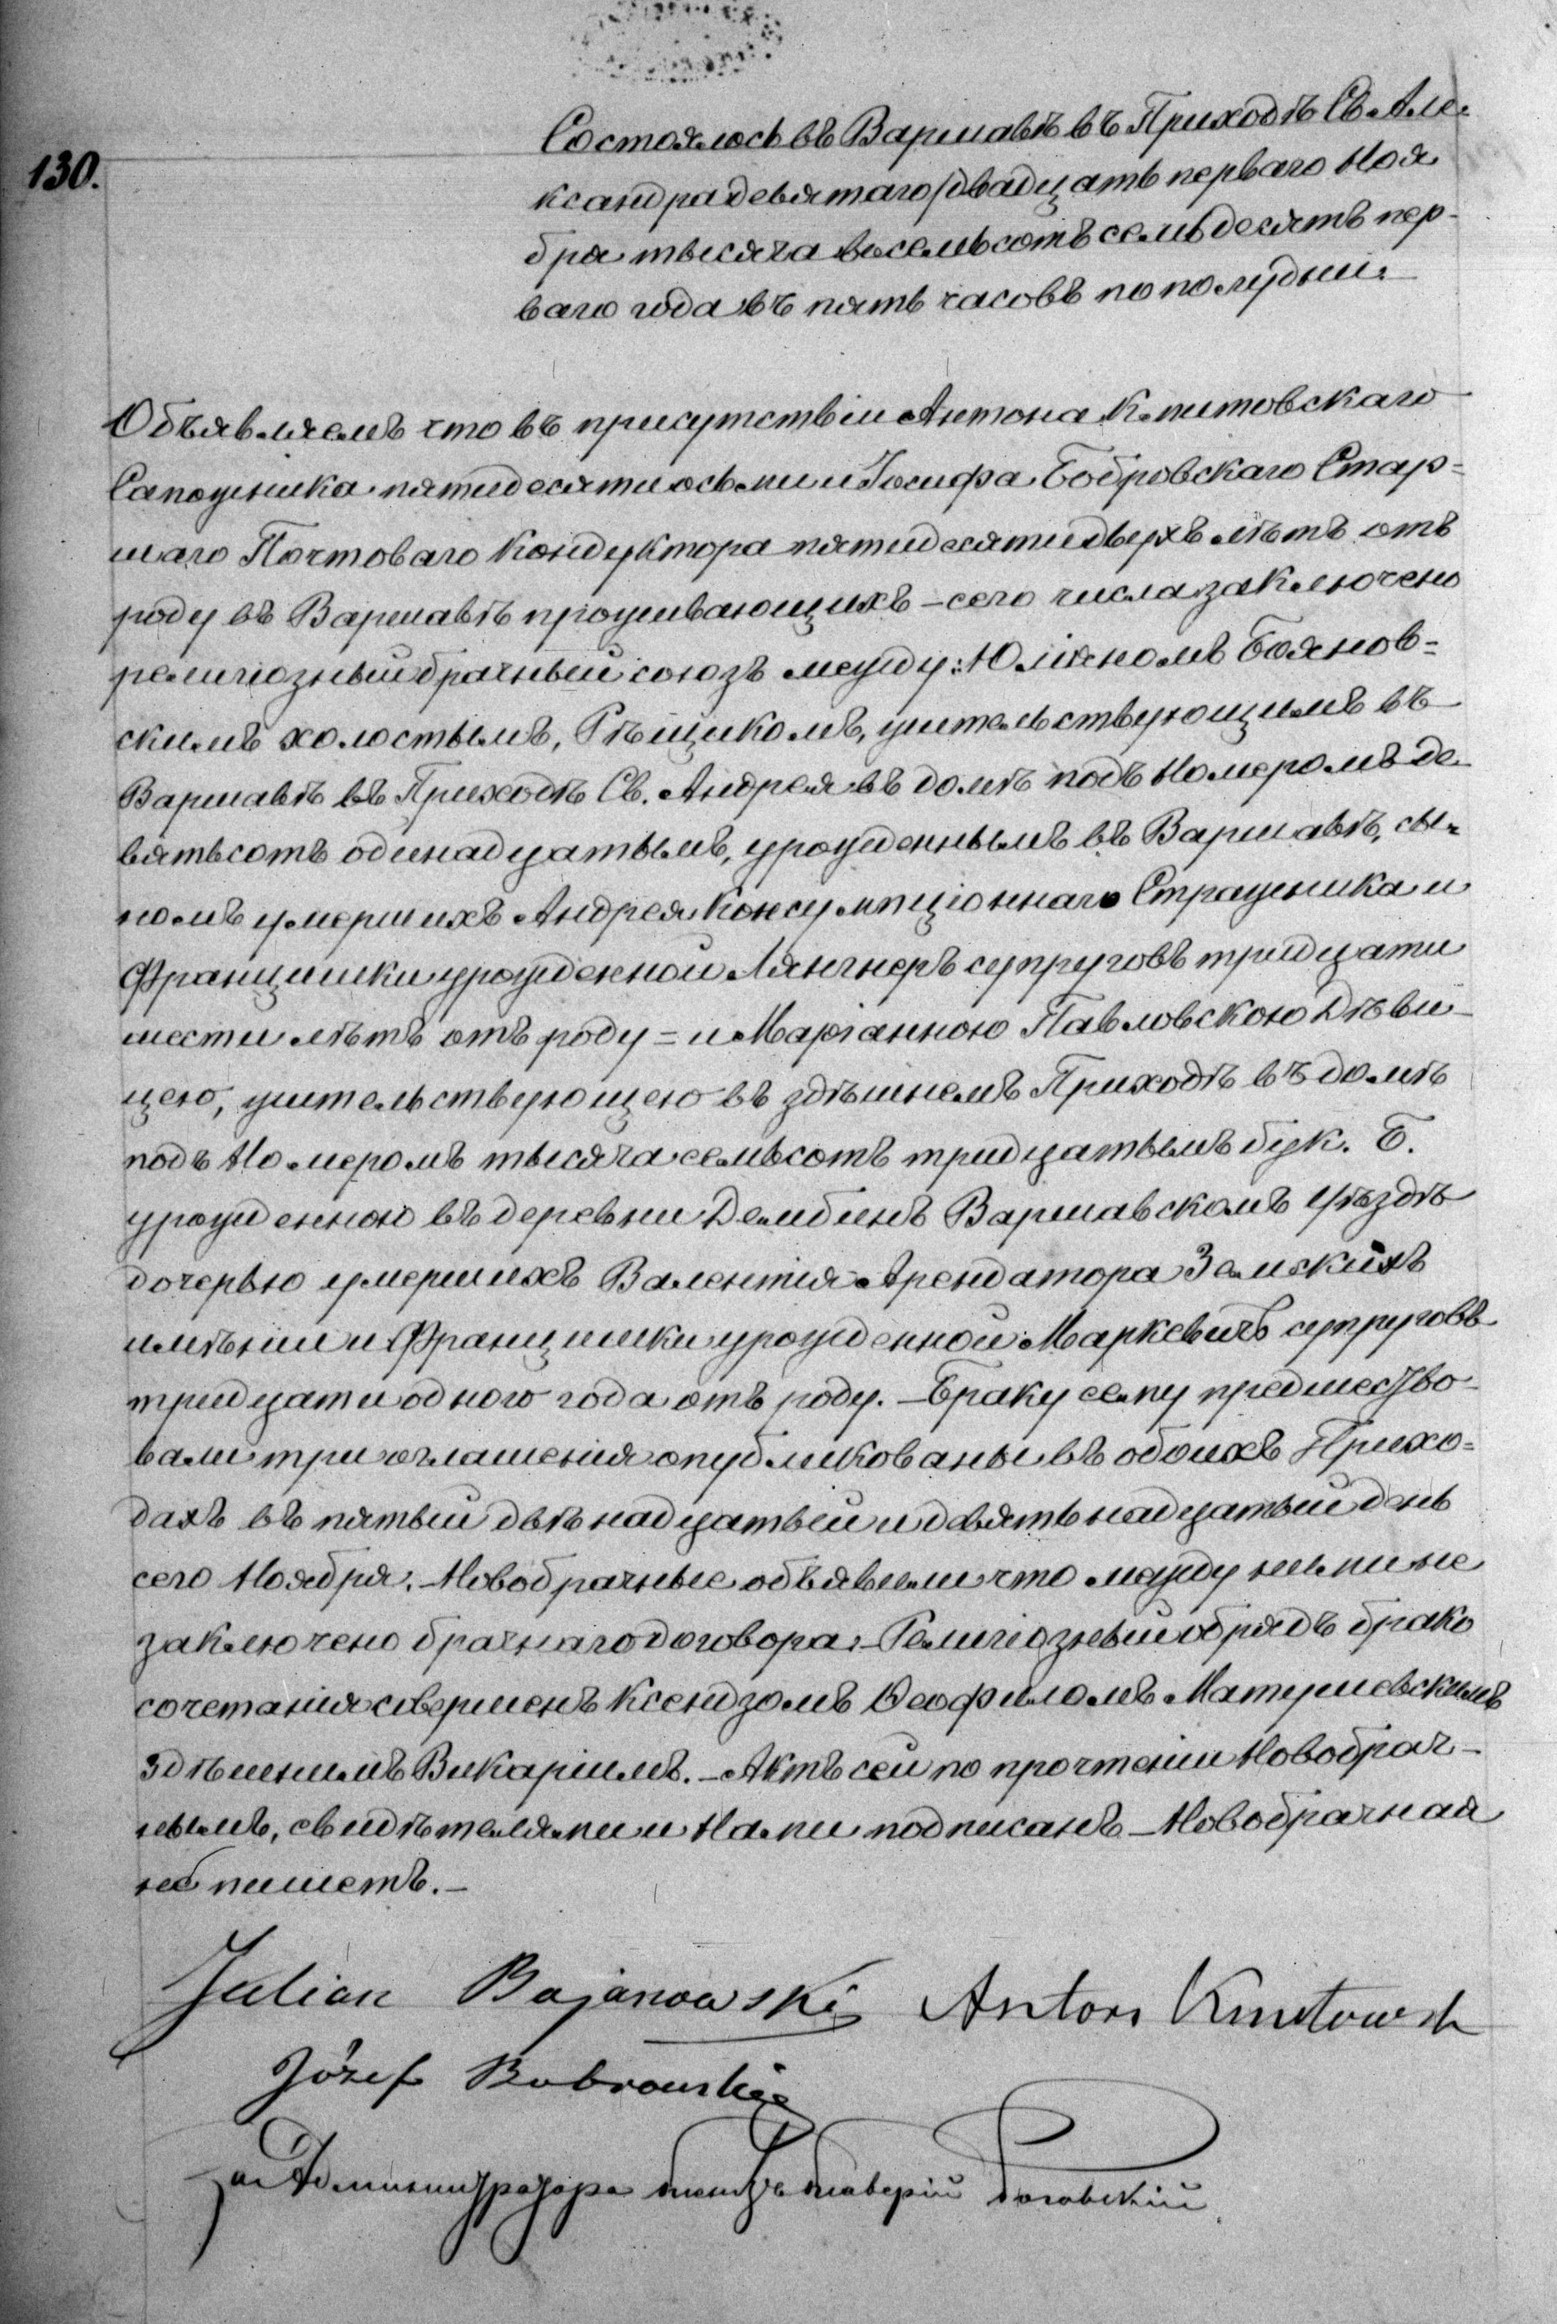 130.
Состоялось въ Варшавѣ въ Приходѣ Св. Але-
ксандра девятаго/двадцать перваго Ноя
бря тысяча восемьсотъ семьдесятъ пер-
ваго года въ пять часовъ по полудни.
Объявляемъ что въ присутствіи Антона Кмитовскаго
Сапожника пятидесяти осьми и Іосифа Бобровскаго Стар=
шаго Почтоваго Кондуктора пятидесяти двухъ лѣтъ отъ
роду въ Варшавѣ проживающихъ – сего числа заключено
религіозный брачный союзъ между: Юліяномъ Боянов=
скимъ холостымъ, Рѣщикомъ, жительствующимъ въ
Варшавѣ въ Приходѣ Св. Андрея въ домѣ подъ Номеромъ де
вятьсотъ одинадцатымъ, урожденнымъ въ Варшавѣ, сы-
номъ умершихъ Андрея Консумпціоннаго Стражника и
Францишки урожденной Лянгнеръ супруговъ тридцати
шести лѣтъ отъ роду = и Маріанною Павловскою Дѣви-
цею, жительствующею въ здѣшнемъ Приходѣ въ домѣ
подъ Номеромъ тысяча семьсотъ тридцатымъ бук. Б.
урожденною въ деревни Дембинъ Варшавскомъ Уѣздѣ
дочерью умершихъ Валентія Арендатора Земскихъ
имѣніи и Францишки урожденной Маркевичъ супруговъ
тридцати одного года отъ роду. – Браку сему предшество-
вали три оглашенія опубликованы въ обоихъ Прихо=
дахъ въ пятый двѣнадцатый и девятьнадцатый день
сего Ноября. – Новобрачные объявили что между ними не
заключено брачнаго договора. – Религіозный обрядъ брако
сочетанія совершенъ Ксендзомъ Ѳеофиломъ Матушевскимъ
здѣшнимъ Викаріимъ. – Актъ сей по прочтеніи Новобрач-
нымъ, свидѣтелями и Нами подписанъ – Новобрачная
не пишетъ. –
Julian Bojanowski Antoni Kmitowsk
Józef Bobrowski
За Администратора Ксендзъ Ксаверій Роговскій